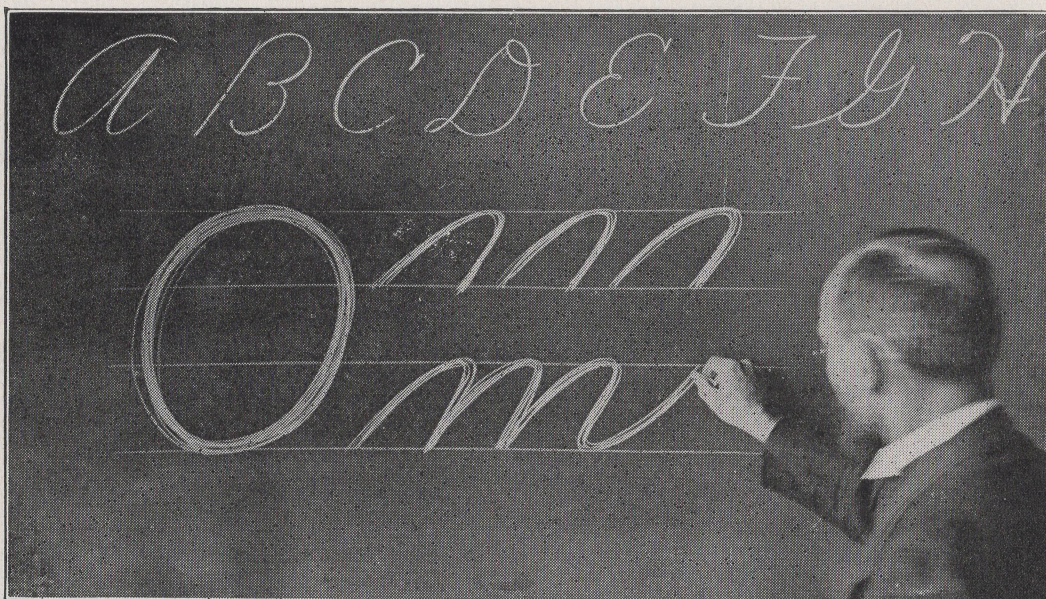 A B C D E F G H
O
m